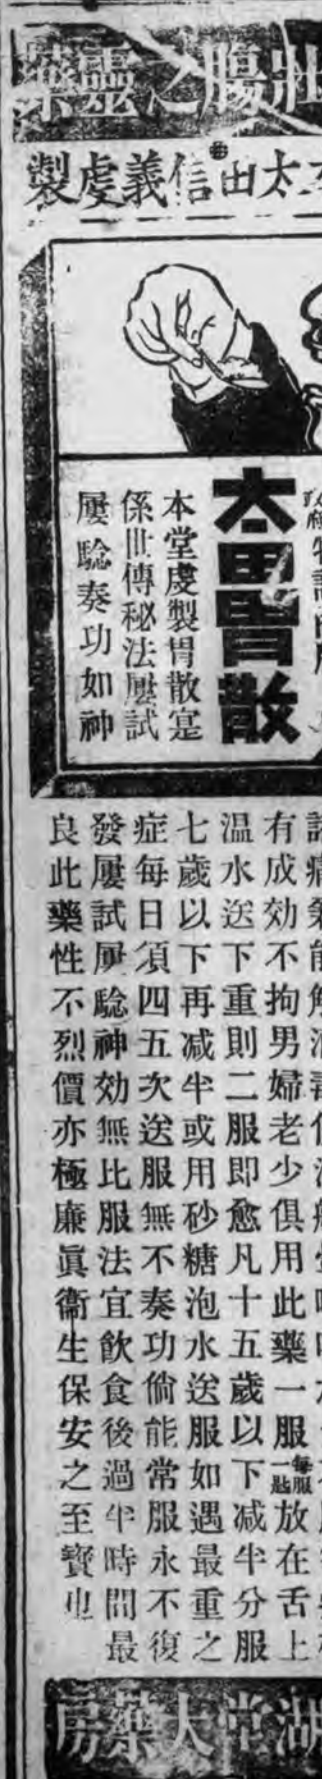 壯腸之靈藥
太田信義虔製
太田胃散
本堂虔製胃散寔
係世傳秘法屢試
屢驗奏功如神
有成効不拘男婦老少俱用此藥一服每服一匙放在舌上
温水送下重則二服即愈凡十五歲以下减半分服
七歲以下再减半或用砂糖泡水送服如遇最重之
症每日須四五次送服無不奏功倘能常服永不復
發屢試屢驗神効無比服法宜飲食後過半時間最
良此藥性不烈價亦極廉眞衞生保安之至寶也
湖堂大藥房